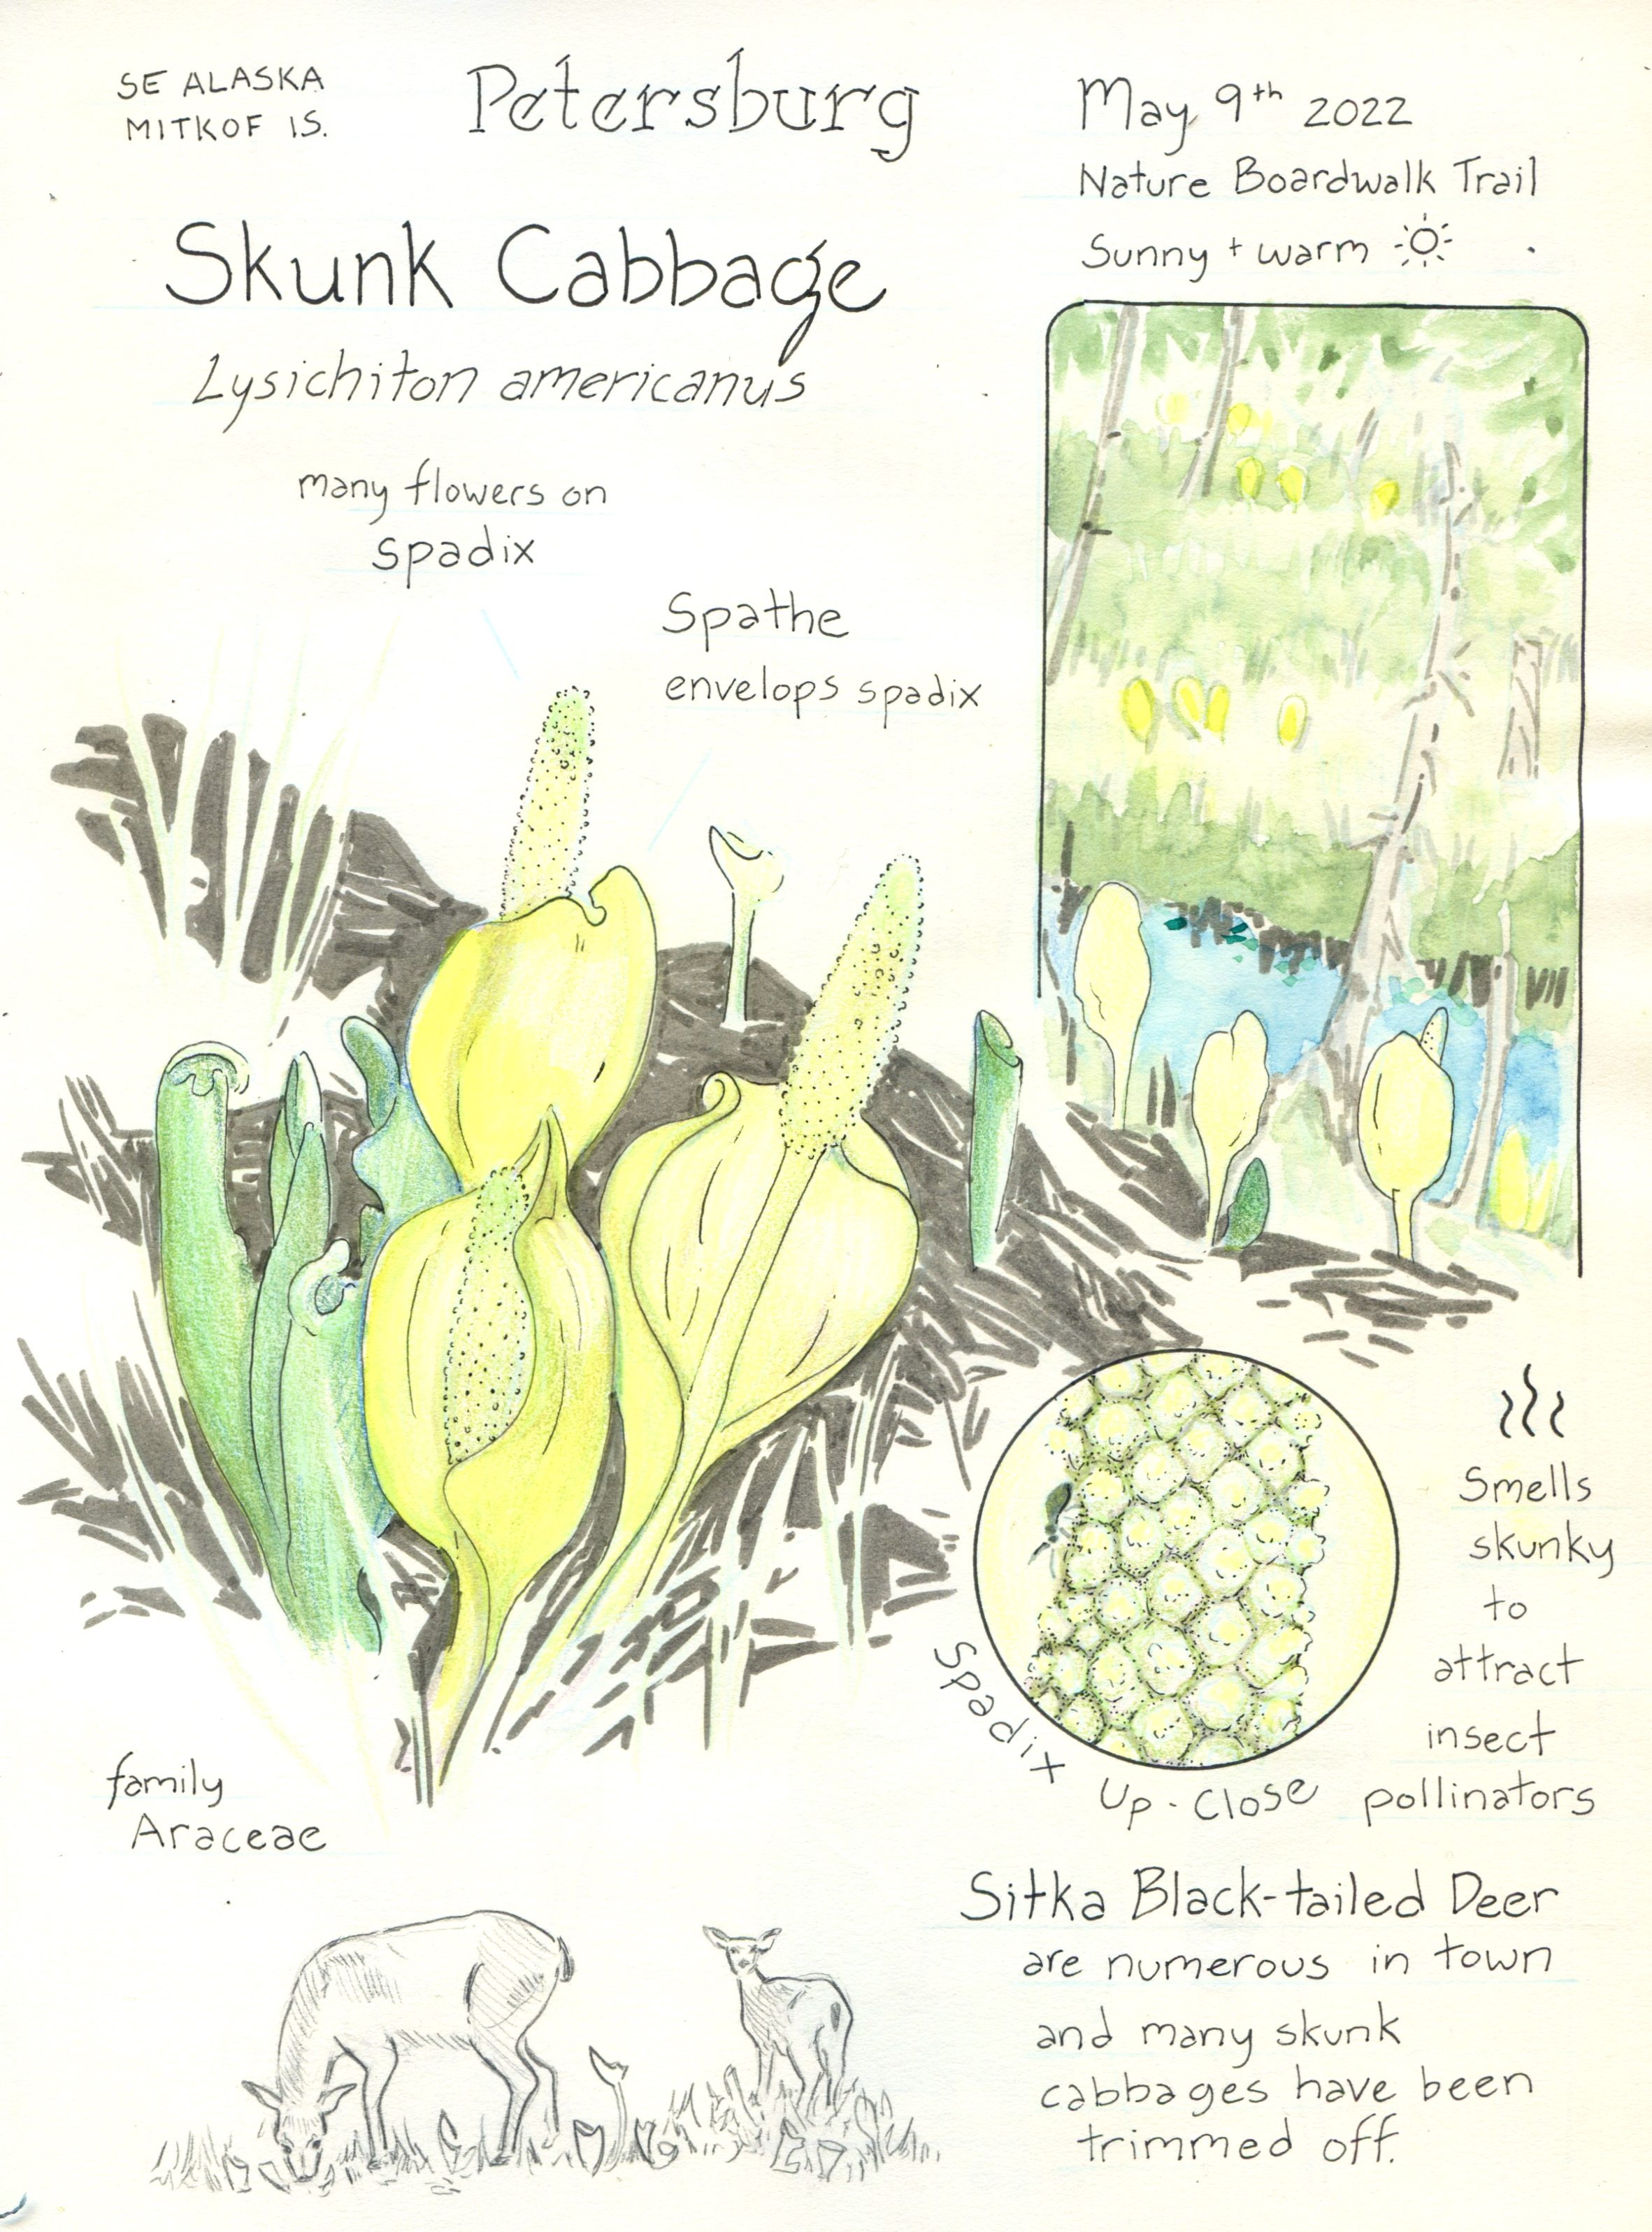 SE ALASKA
MITKOF IS.
Petersburg
May 9th 2022
Nature Boardwalk Trail
Sunny + warm
Skunk Cabbage
Lysichiton americanus
many flowers on
spadix
Spathe
envelops spadix
Smells
skunky
to
attract
insect
pollinators
Spadix Up-Close
family
Araceae
Sitka Black-tailed Deer
are numerous in town
and many skunk
cabbages have been
trimmed off.